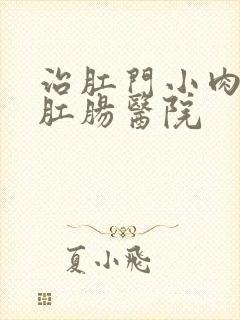 治肛門小肉
肛腸醫院
夏小飛